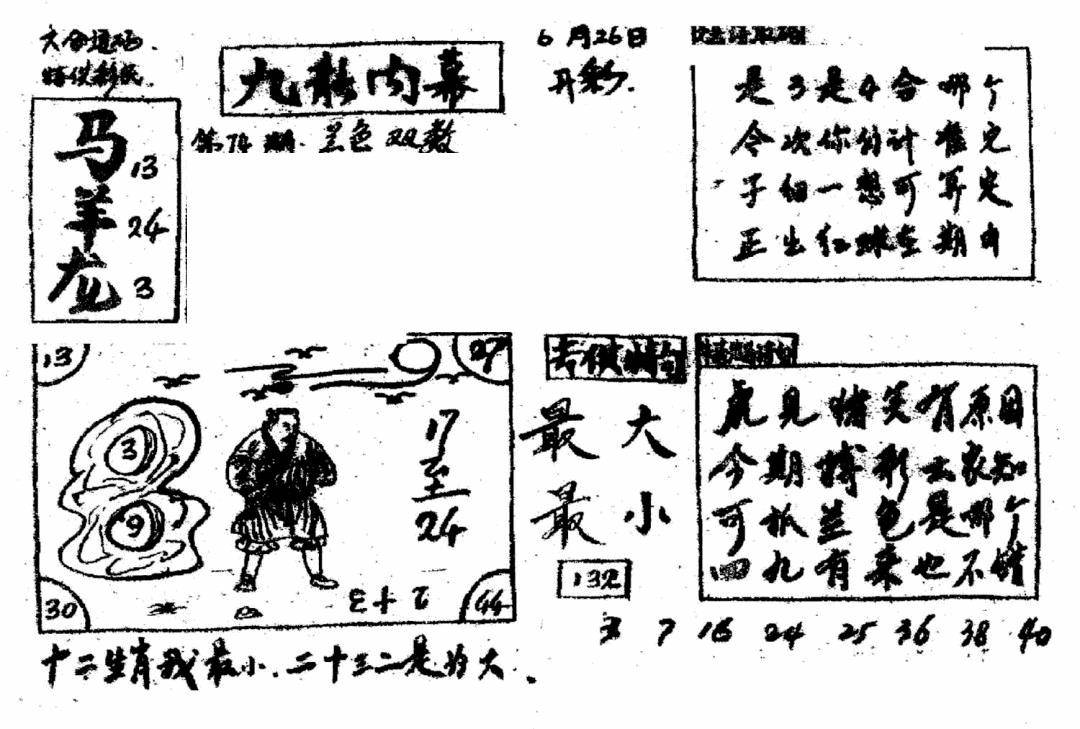 六合通码.
特供彩民.
马 13
羊 24
龙 3
九龙内幕
第74期. 兰色双数
6月26日
开彩.
是3是4合哪个
今次你估计准定
子细一想可算定
正出红球在期中
13
27
3
9
17
至
24
30
44
2十3
十二生肖我最小.二十三二是为大.
专供特句
最大
最小
132
虎见猪笑有原因
今期搏彩大家知
可抓兰色是哪个
四九有来也不错
7 18 24 25 36 38 40